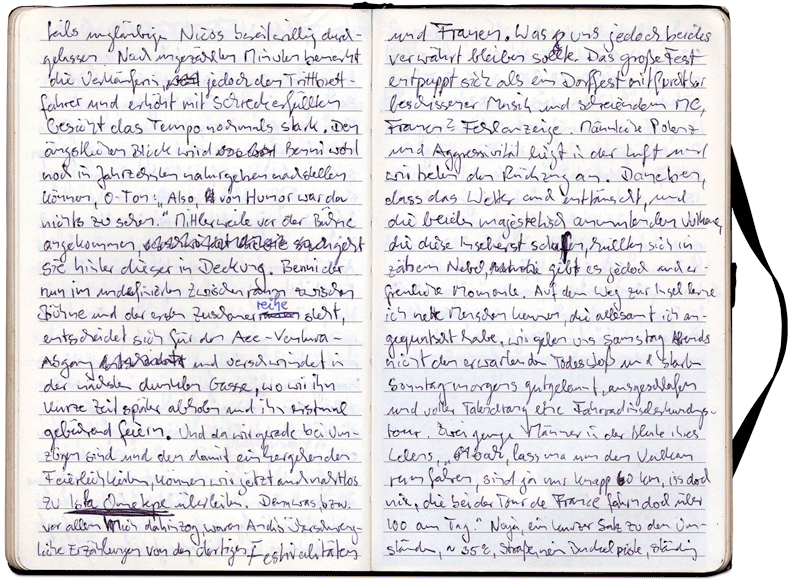 teils ungläubige Nicos bereitwillig durch-
gelassen. Nach ungezählten Minuten bemerkt
die Verkäuferin, jedoch den Trittbrett-
fahrer und erhöht mit schreckerfülltem
Gesicht das Tempo nochmals stark. Den
ängstlichen Blick wird Benni wohl
noch in Jahrzehnten naturgetreu nachstellen
können, O-Ton: „Also, von Humor war da
nichts zu sehen." Mittlerweile vor der Bühne
angekommen, geht
sie hinter dieser in Deckung. Benni der
nun im undefinierten Zwischenraum zwischen
Bühne und der ersten Zuschauerreihe steht,
entscheidet sich für den Ace-Ventura-
Abgang und verschwindet in
der nächsten dunklen Gasse, wo wir ihn
kurze Zeit später abholen und ihn erstmal
gebührend feiern. Und da wir gerade bei Um-
zügen sind und den damit einhergehenden
Feierlichkeiten, können wir jetzt auch nahtlos
zu Isla Ometepe überleiten. Denn was, bzw.
vor allem Mich dahin zog, waren Andis überschweng-
liche Erzählungen von den dortigen Festivalitäten
und Frauen. Was uns jedoch beides
verwährt bleiben sollte. Das große Fest
entpuppt sich als ein Dorffest mit furchtbar
beschissener Musik und schreiendem MC,
Frauen? Fehlanzeige. Männliche Potenz
und Aggressivität liegt in der Luft und
wir treten den Rückzug an. Daneben,
dass das Wetter uns enttäuscht, und
die beiden majestetisch anmutenden Vulkane,
die diese Insel erst schaffen, hüllen sich in
zähem Nebel, gibt es jedoch auch er-
freuliche Momente. Auf dem Weg zur Insel lerne
ich nette Menschen kennen, die allesamt ich an-
gequatscht habe, wir gehen uns Samstag Abends
nicht den erwartenden Todesstoß und starten
Sonntag morgens gutgelaunt, ausgeschlafen
und voller Tatendrang eine Fahrradinselerkundungs-
tour. Zwei junge Männer in der Blüte ihres
Lebens, „lass ma um den Vulkan
rum fahren, sind ja nur knapp 60 km, iss doch
nix, die bei der Tour de France fahrn doch über
100 am Tag." Naja, ein kurzer Satz zu den Um-
ständen, ~ 35°C, Straße, ständig